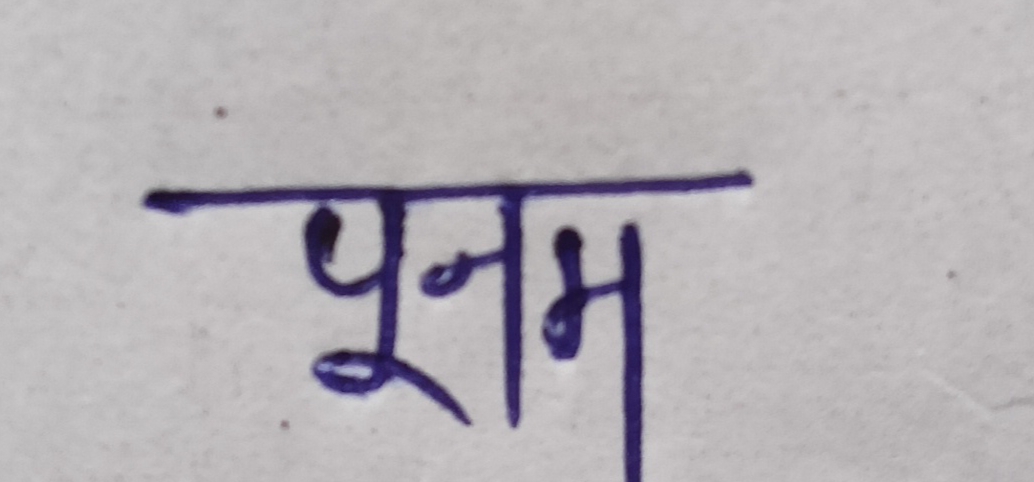 पूनम